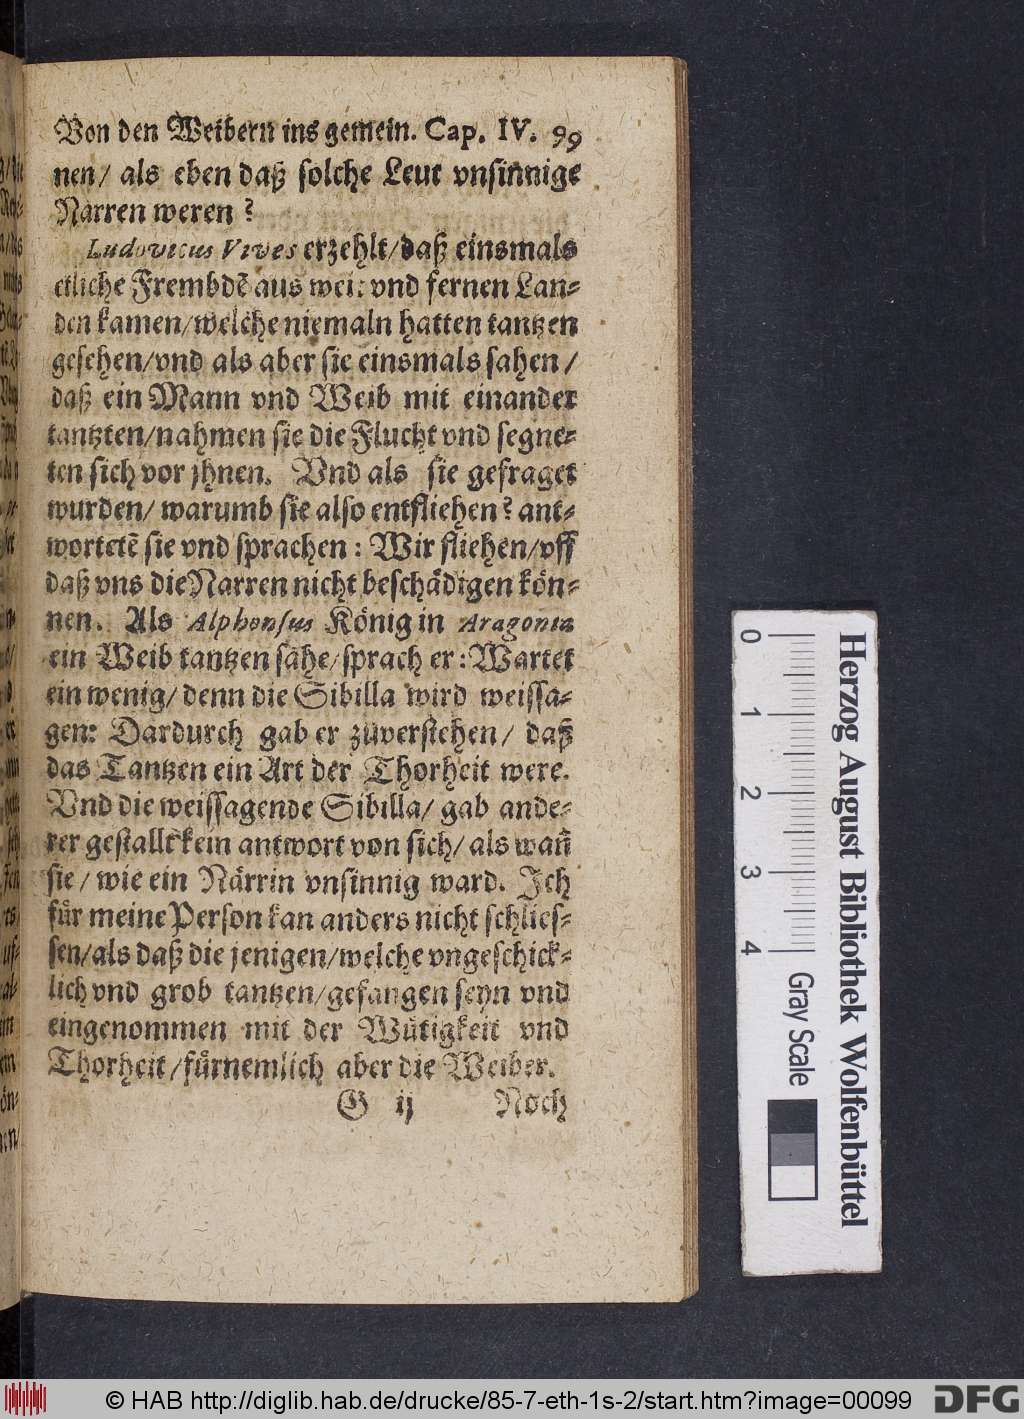 Von den Weibern ins gemein. Cap. IV. 99
nen/ als eben daß solche Leut vnsinnige
Narren weren?
Ludovicus Vives erzehlt/daß einsmals
etliche Frembdē aus weit vnd fernen Lan-
den kamen/welche niemaln hatten tantzen
gesehen/vnd als aber sie einsmals sahen/
daß ein Mann vnd Weib mit einander
tantzten/nahmen sie die Flucht vnd segne-
ten sich vor jhnen. Vnd als sie gefraget
wurden/ warumb sie also entfliehen? ant-
wortetē sie vnd sprachen: Wir fliehen/vff
daß vns die Narren nicht beschädigen kön-
nen. Als Alphonsus König in Aragonia
ein Weib tantzen sahe/sprach er: Wartet
ein wenig/ denn die Sibilla wird weissa-
gen: Dardurch gab er züverstehen/ daß
das Tantzen ein Art der Thorheit were.
Vnd die weissagende Sibilla/ gab ande-
rer gestallt kein antwort von sich/ als wañ
sie/ wie ein Närrin vnsinnig ward. Ich
für meine Person kan anders nicht schlies-
sen/als daß die jenigen/welche vngeschick-
lich vnd grob tantzen/gefangen seyn vnd
eingenommen mit der Wütigkeit vnd
Thorheit/fürnemlich aber die Weiber.
G ij Noch
0 1 2 3 4
Gray Scale
Herzog August Bibliothek Wolfenbüttel
© HAB http://diglib.hab.de/drucke/85-7-eth-1s-2/start.htm?image=00099
DFG